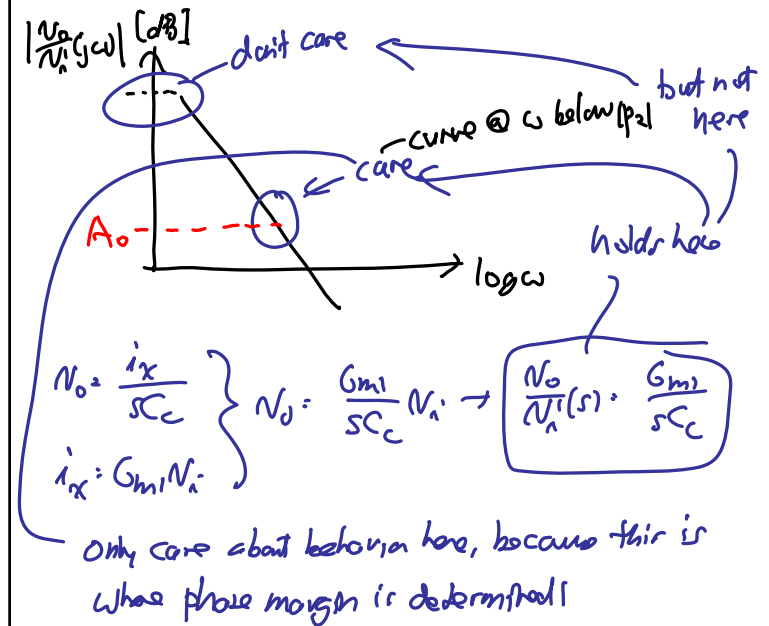 |vo/vi (jω)| [dB]
don't care
but not
here
curve @ ω below |p2|
care
A₀
holds here
logω
vo = ix/sCc
ix = Gm1vi
} vo = Gm1/sCc vi → vo/vi (s) = Gm1/sCc
only care about behavior here, because this is
where phase margin is determined!